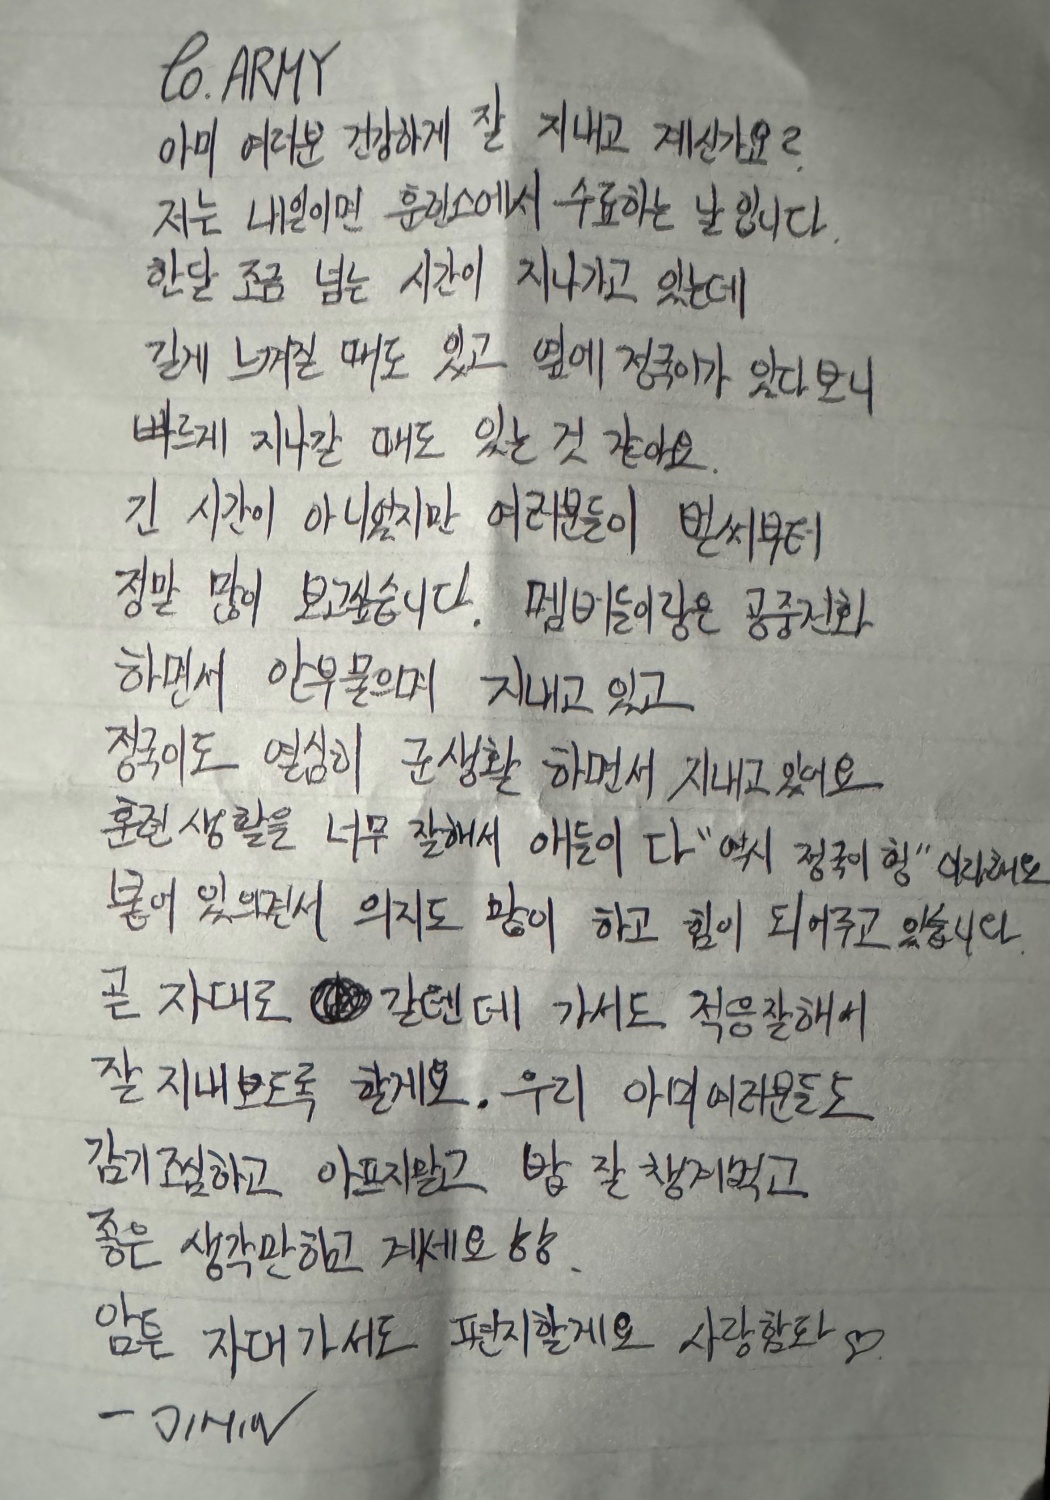 To. ARMY
아미 여러분 건강하게 잘 지내고 계신가요?
저는 내일이면 훈련소에서 수료하는 날입니다.
한달 조금 넘는 시간이 지나가고 있는데
길게 느껴질 때도 있고 옆에 정국이가 있다보니
빠르게 지나갈 때도 있는 것 같아요.
긴 시간이 아니었지만 여러분들이 벌써부터
정말 많이 보고싶습니다. 멤버들이랑은 공중전화
하면서 안부 물으며 지내고 있고
정국이도 열심히 군생활 하면서 지내고 있어요
훈련 생활을 너무 잘해서 애들이 다 "역시 정국이 형" 이라해요
붙어 있으면서 의지도 많이 하고 힘이 되어주고 있습니다.
곧 자대로 갈텐데 가서도 적응잘해서
잘 지내보도록 할게요. 우리 아미여러분들도
감기조심하고 아프지말고 밥 잘 챙겨먹고
좋은 생각만하고 계세요
암튼 자대가서도 편지할게요 사랑함다 ♡.
- JIMIN